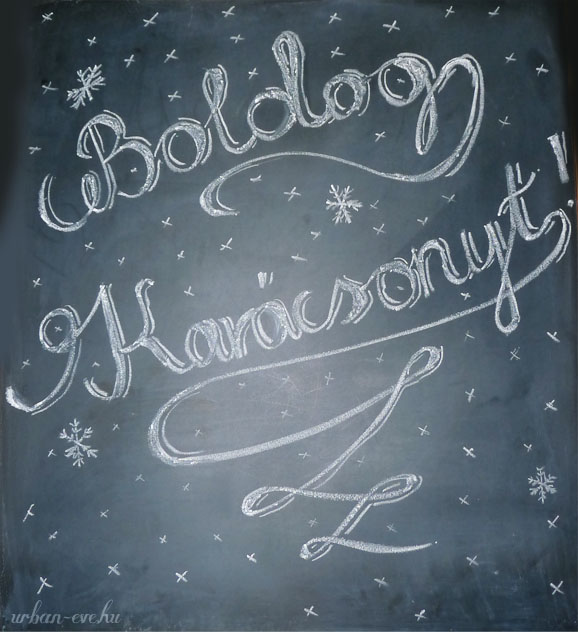 Boldog
Karácsonyt!
urban-eve.hu